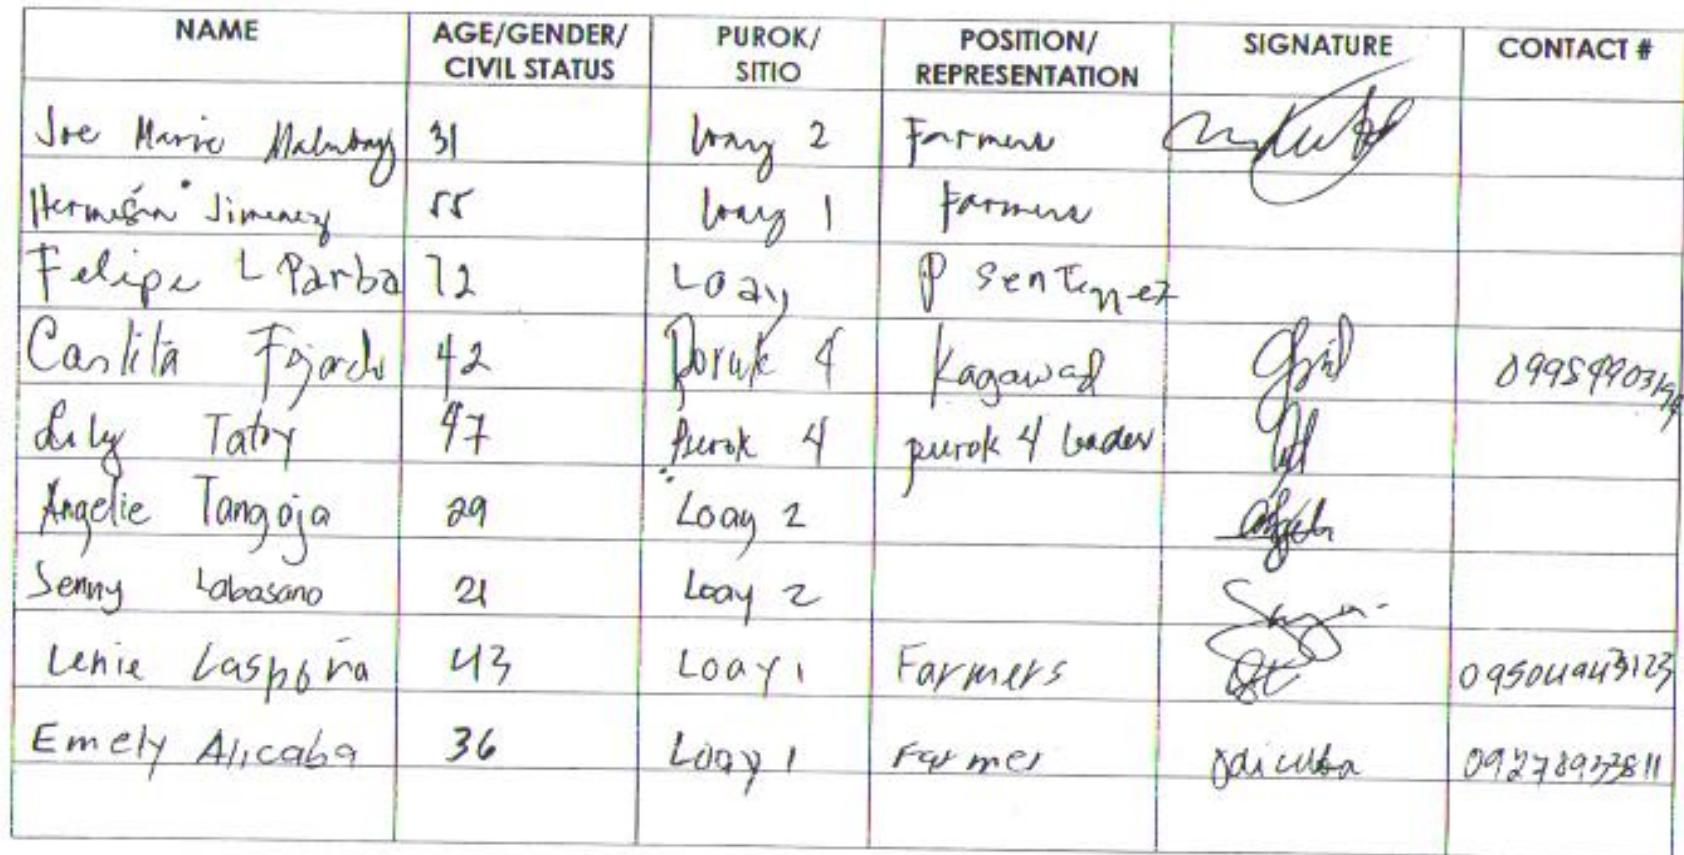 NAME AGE/GENDER/ CIVIL STATUS PUROK/ SITIO POSITION/ REPRESENTATION SIGNATURE CONTACT #
Joe Marie 31 Loay 2 Farmers
Jimenez 55 Loay 1 Farmers
Felipe L Parba 72 Loay P
Carlita Fajardo 42 Poruk 4 Kagawad
Lily Tatoy 47 Purok 4 purok 4 leader
Angelie Tangoja 29 Loay 2
Senny Labasano 21 Loay 2
Lenie Laspoña 43 Loay 1 Farmers 09504943123
Emely Alicaba 36 Loay 1 Farmer